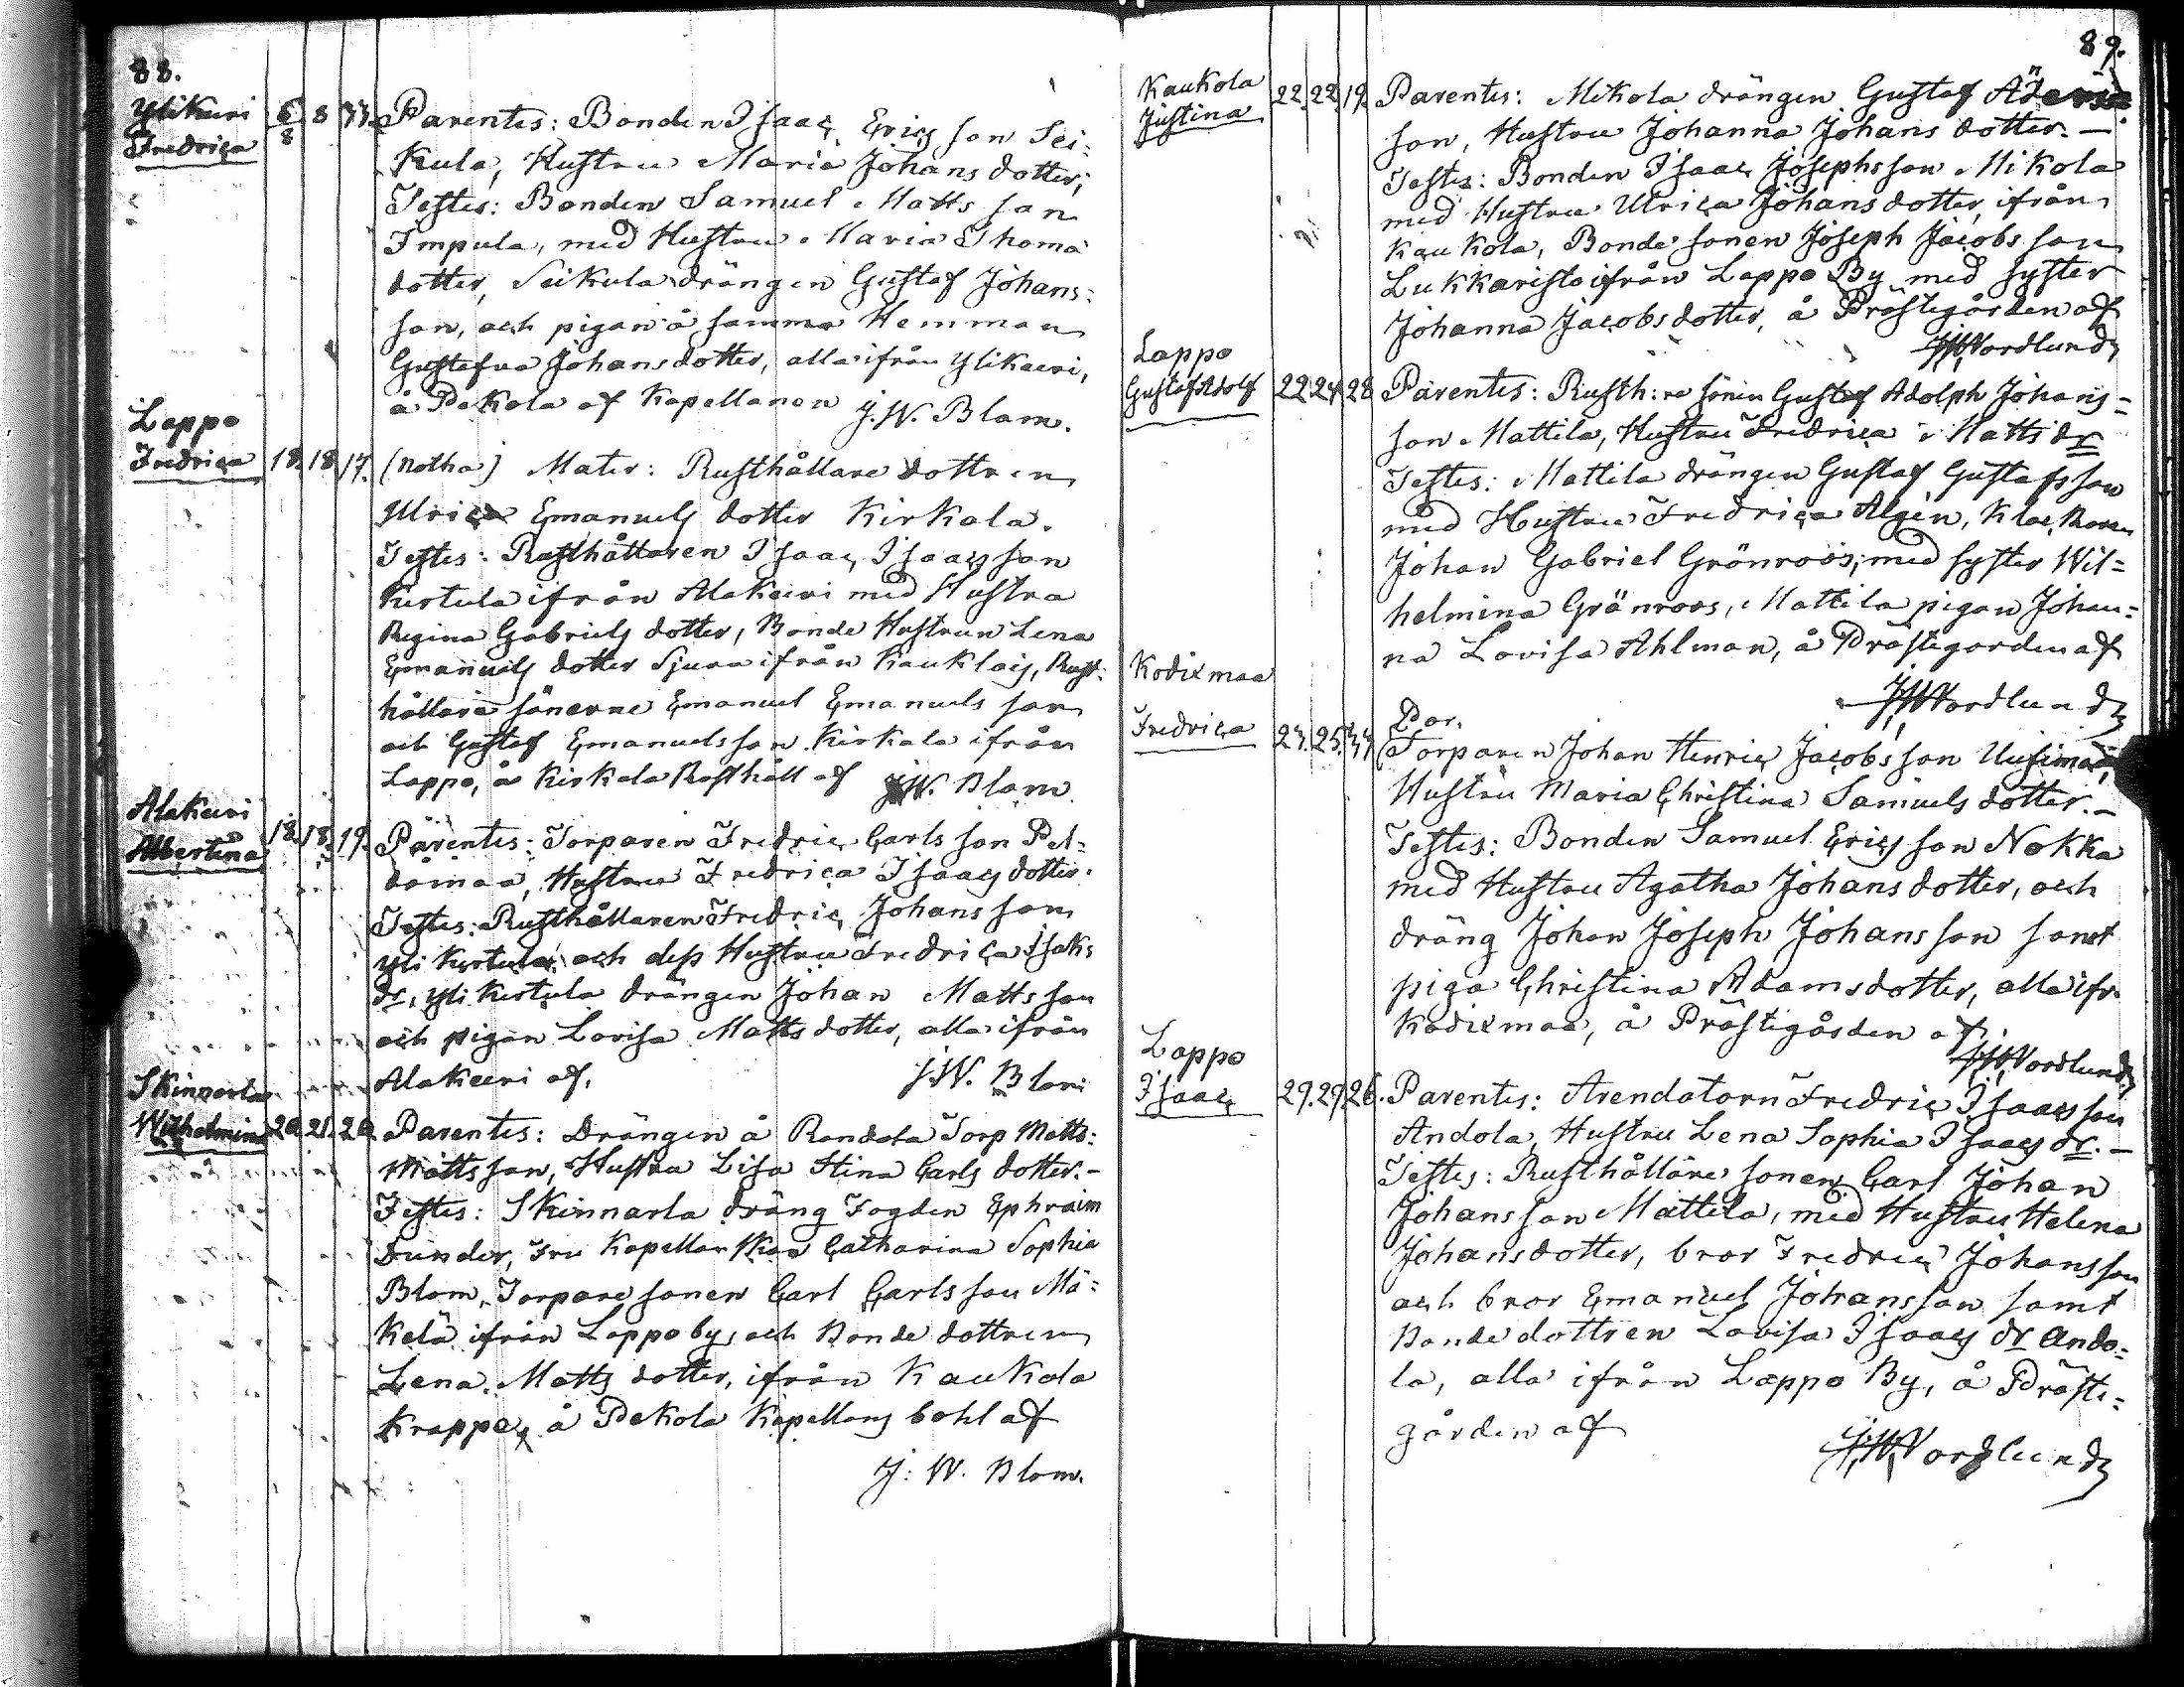 88.
Ylikeeri
Fredrica
6/8 8 33. Parentes: Bonden Isaac Ericsson Sei:
kula, Hustru Maria Johans dotter,
Testes: Bonden Samuel Matts son
Impula, med Hustru Maria Thomæ
dotter, Seikula drängen Gustaf Johans:
son, och pigan å samma Hemman
Gustafva Johansdotter, alla ifrån Ylikeeri,
å Pekola af Kapellanen J. W. Blom.
Lappo
Fredrica 18. 18. 17. (Notha) Mater: Rusthållare dottren
Ulrica Emanuels dotter Kirkala.
Testes: Rusthållaren Isaac Isaacsson
Kertula ifrån Alakeeri med Hustru
Regina Gabriels dotter, Bonde Hustrun Lena
Emanuels dotter Sjura ifrån Kauklais, Rust:
hållare sönerne Emanuel Emanuels son
och Gustaf Emanuelsson Kirkala ifrån
Lappo, å Kirkala Rusthåll af J. W. Blom
Alakeeri
Albertina 18. 18. 19. Parentes: Torparen Fredric Carls son Pel:
domaa, Hustru Fredrica Isaacs dotter.
Testes: Rusthållaren Fredric Johansson
Yli Kertula och dess Hustru Fredrica Isaks
dr, Yli Kertula drängen Johan Matts son
och pigan Lovisa Matts dotter, alla ifrån
Alakeeri af. J. W. Blom
Skinnarla
Wilhelmina 20. 21. 20. Parentes: Drängen å Randala Torp Matts:
Mattsson, Hustru Lisa Stina Carls dotter.-
Testes: Skinnarla Dräng Fogden Ephraim
Dunder, Fru Kapellanskan Catharina Sophia
Blom, Torpare sonen Carl Carlsson Mä:
kelä ifrån Lappo by, och Bonde dottren
Lena Matts dotter, ifrån Kaukola
Krappe, å Pekola Kapellans bohl af
J: W. Blom.
89.
Kaukola
Justina 22. 22. 19. Parentes: Mikola drängen Gustaf
son, Hustru Johanna Johans dotter.-
Testes: Bonden Isaac Josephsson Mikola
med Hustru Ulrica Johans dotter, ifrån
Kaukola, Bonde sonen Joseph Jacobs son
Lukkaristo ifrån Lappo By med syster
Johanna Jacobsdotter, å Prästegården af
J. W. Nordlund
Lappo
Gustaf Adolf 22. 24. 28. Parentes: Rusth:re sonen Gustaf Adolph Johans=
son Mattila, Hustru Fredrica Matts dr
Testes: Mattila drängen Gustaf Gustafsson
med Hustru Fredrica Algén, Klockaren
Johan Gabriel Grönroos, med syster Wil=
helmina Grönroos, Mattila pigan Johan=
na Lovisa Ahlman, å Prästegården af
Nordlund
Kodixmaa
Fredrica 24. 25. Par.
Torparen Johan Henric Jacobs son Uusimaa,
Hustru Maria Christina Samuels dotter.-
Testes: Bonden Samuel Ericsson Nokka
med Hustru Agatha Johans dotter, och
dräng Johan Joseph Johansson samt
piga Christina Adamsdotter, alla ifr.
Kodixmaa, å Prästegården af.
Nordlund
Lappo
Isaac 29. 29. 26. Parentes: Arendatorn Fredric Isaacsson
Andola, Hustru Lena Sophia Isaacs dr.-
Testes: Rusthållare sonen Carl Johan
Johansson Mattila, med Hustru Helena
Johansdotter, bror Fredric Johansson
och bror Emanuel Johansson samt
Bonde dottren Lovisa Isaacs dr Ando=
la, alla ifrån Lappo By, å Präste=
gården af
Nordlund